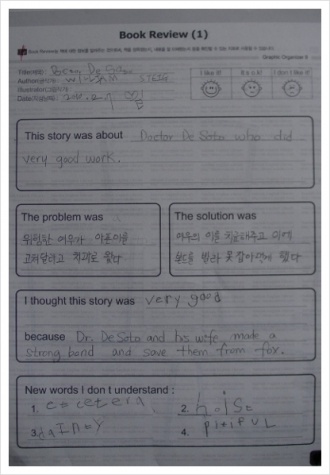 Book Review (1)
Graphic Organizer
Title
De Soto
Author
William Steig
Illustrator
Date
I like it!
It is o.k!
I don't like it!
This story was about Doctor De Soto who did
very good work.
The problem was
위험한 여우가 아픈이을
고쳐달라고 치과로 왔다
The solution was
여우의 이을 치료해주고 이에
본드를 발라 못잡아먹게 했다
I thought this story was very good
because Dr. De Soto and his wife made a
strong bond and save them from for.
New words I don t understand :
1. etcetera
2. hoist
3. dainty
4. pitiful